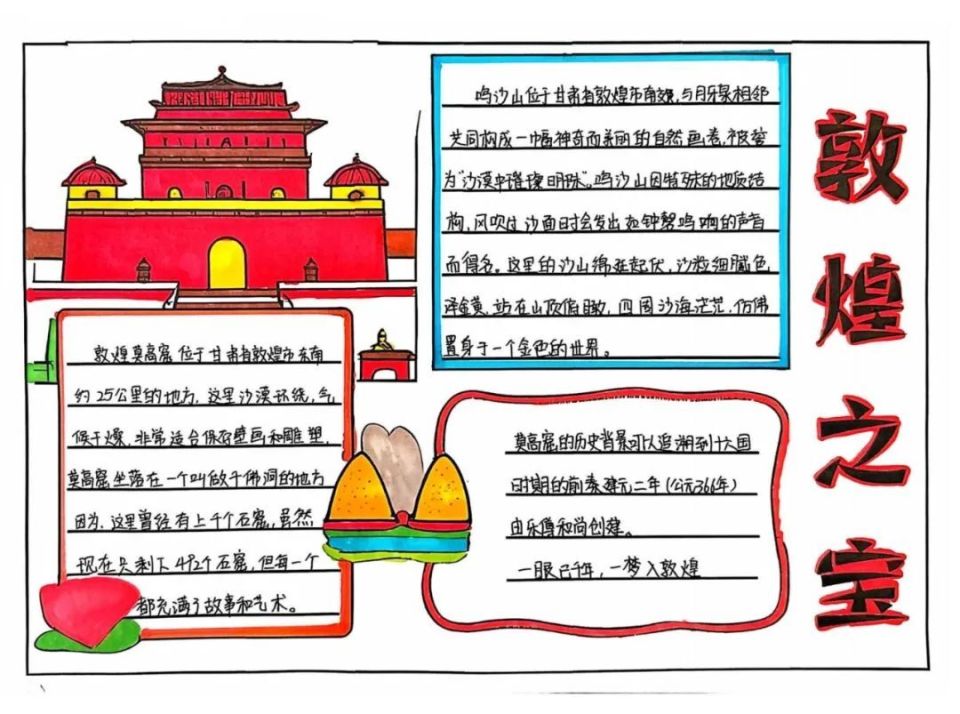 敦煌之宝
鸣沙山位于甘肃省敦煌市南郊，与月牙泉相邻
共同构成一幅神奇而美丽的自然画卷，被誉
为“沙漠中璀璨明珠”。鸣沙山因特殊的地质结
构，风吹过沙面时会发出如钟磬鸣响的声音
而得名。这里的沙山绵延起伏，沙粒细腻色
泽金黄，站在山顶俯瞰，四周沙海茫茫，仿佛
置身于一个金色的世界。
敦煌莫高窟位于甘肃省敦煌市东南
约25公里的地方，这里沙漠环绕，气
候干燥，非常适合保存壁画和雕塑，
莫高窟坐落在一个叫做千佛洞的地方
因为，这里曾经有上千个石窟，虽然
现在只剩下492个石窟，但每一个
都充满了故事和艺术。
莫高窟的历史背景可以追溯到十六国
时期的前秦建元二年(公元366年)
由乐僔和尚创建。
一眼已千年，一梦入敦煌